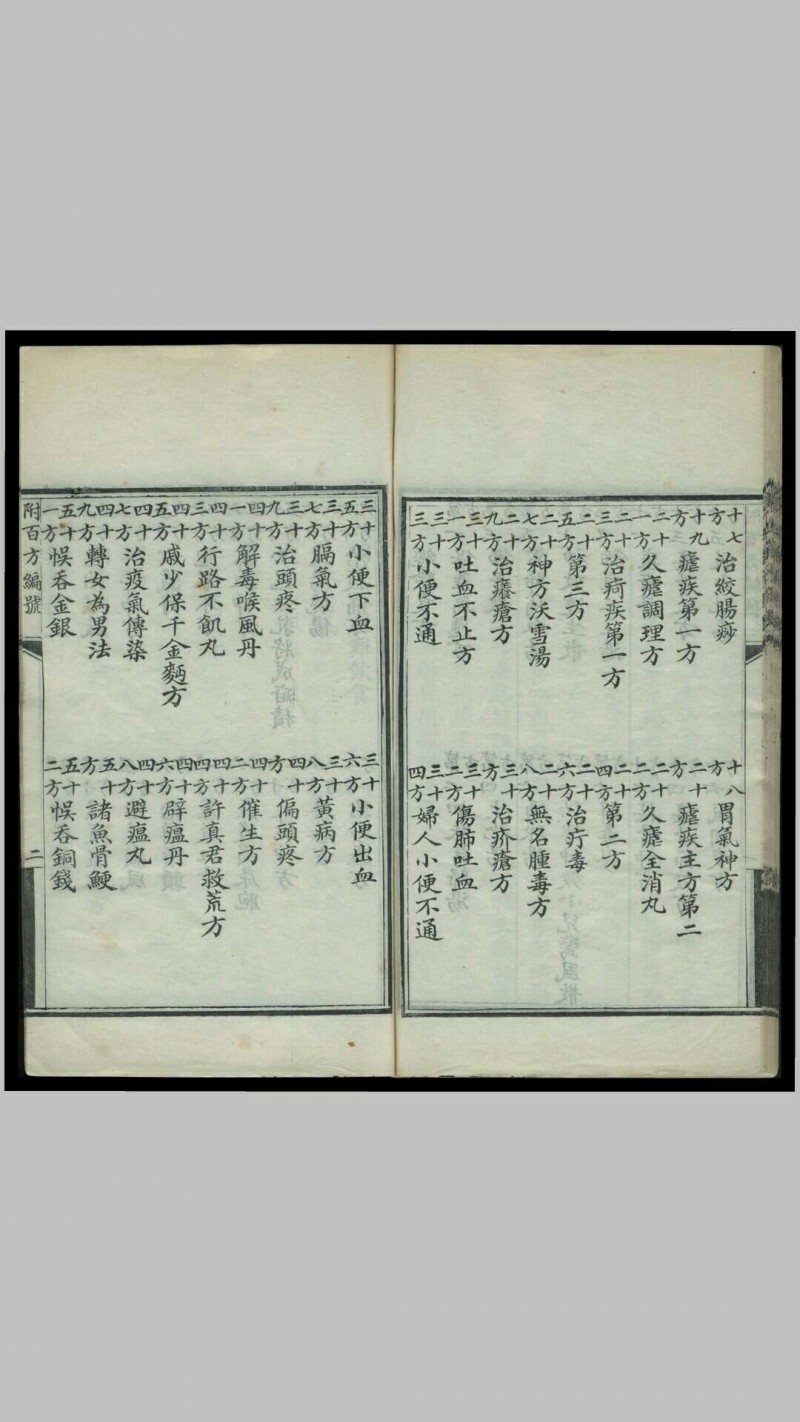 十七方 治絞腸痧
十八方 胃氣神方
十九方 瘧疾第一方
二十方 瘧疾主方第二
二十一方 久瘧調理方
二十二方 久瘧全消丸
二十三方 治痢疾第一方
二十四方 第二方
二十五方 第三方
二十六方 治疔毒
二十七方 神方沃雪湯
二十八方 無名腫毒方
二十九方 治癢瘡方
三十方 治疥瘡方
三十一方 吐血不止方
三十二方 傷肺吐血
三十三方 小便不通
三十四方 婦人小便不通
三十五方 小便下血
三十六方 小便出血
三十七方 膈氣方
三十八方 黃病方
三十九方 治頭疼
四十方 偏頭疼
四十一方 解毒喉風丹
四十二方 催生方
四十三方 行路不飢丸
四十四方 許真君救荒方
四十五方 戚少保千金麪方
四十六方 辟瘟丹
四十七方 治疫氣傳染
四十八方 避瘟丸
四十九方 轉女為男法
五十方 諸魚骨鯁
五十一方 悞吞金銀
五十二方 悞吞銅錢
附百方編號
二